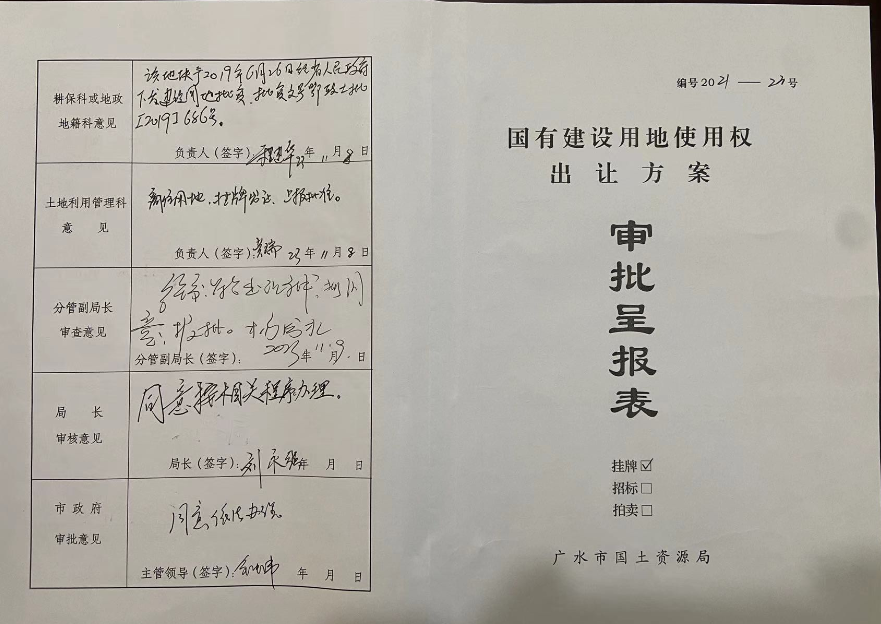 耕保科或地政
地籍科意见
该地块于2019年6月26日经省人民政府
下发建设用地批复，批复文号鄂政土批
[2019]686号。
负责人（签字） 23年11月8日
土地利用管理科
意 见
用地，挂牌出让，上报批准。
负责人（签字）： 23年11月8日
分管副局长
审查意见
意，报批。
分管副局长（签字）： 2023年11月9日
局 长
审核意见
同意按相关程序办理。
局长（签字）：刘永 年 月 日
市政府
审批意见
同意依法办理。
主管领导（签字）： 年 月 日
编号2021——23号
国有建设用地使用权
出让方案
审批呈报表
挂牌☑
招标□
拍卖□
广水市国土资源局